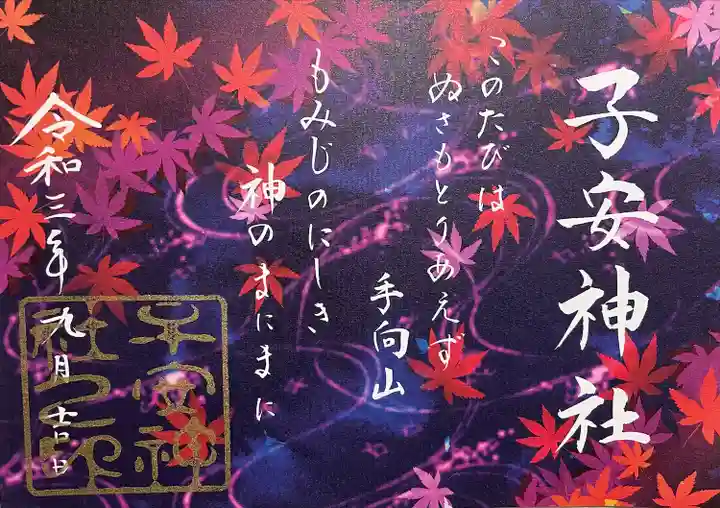 子安神社
このたびは
ぬさもとりあえず
手向山
もみじのにしき
神のまにまに
令和三年九月吉日
子安神社之印